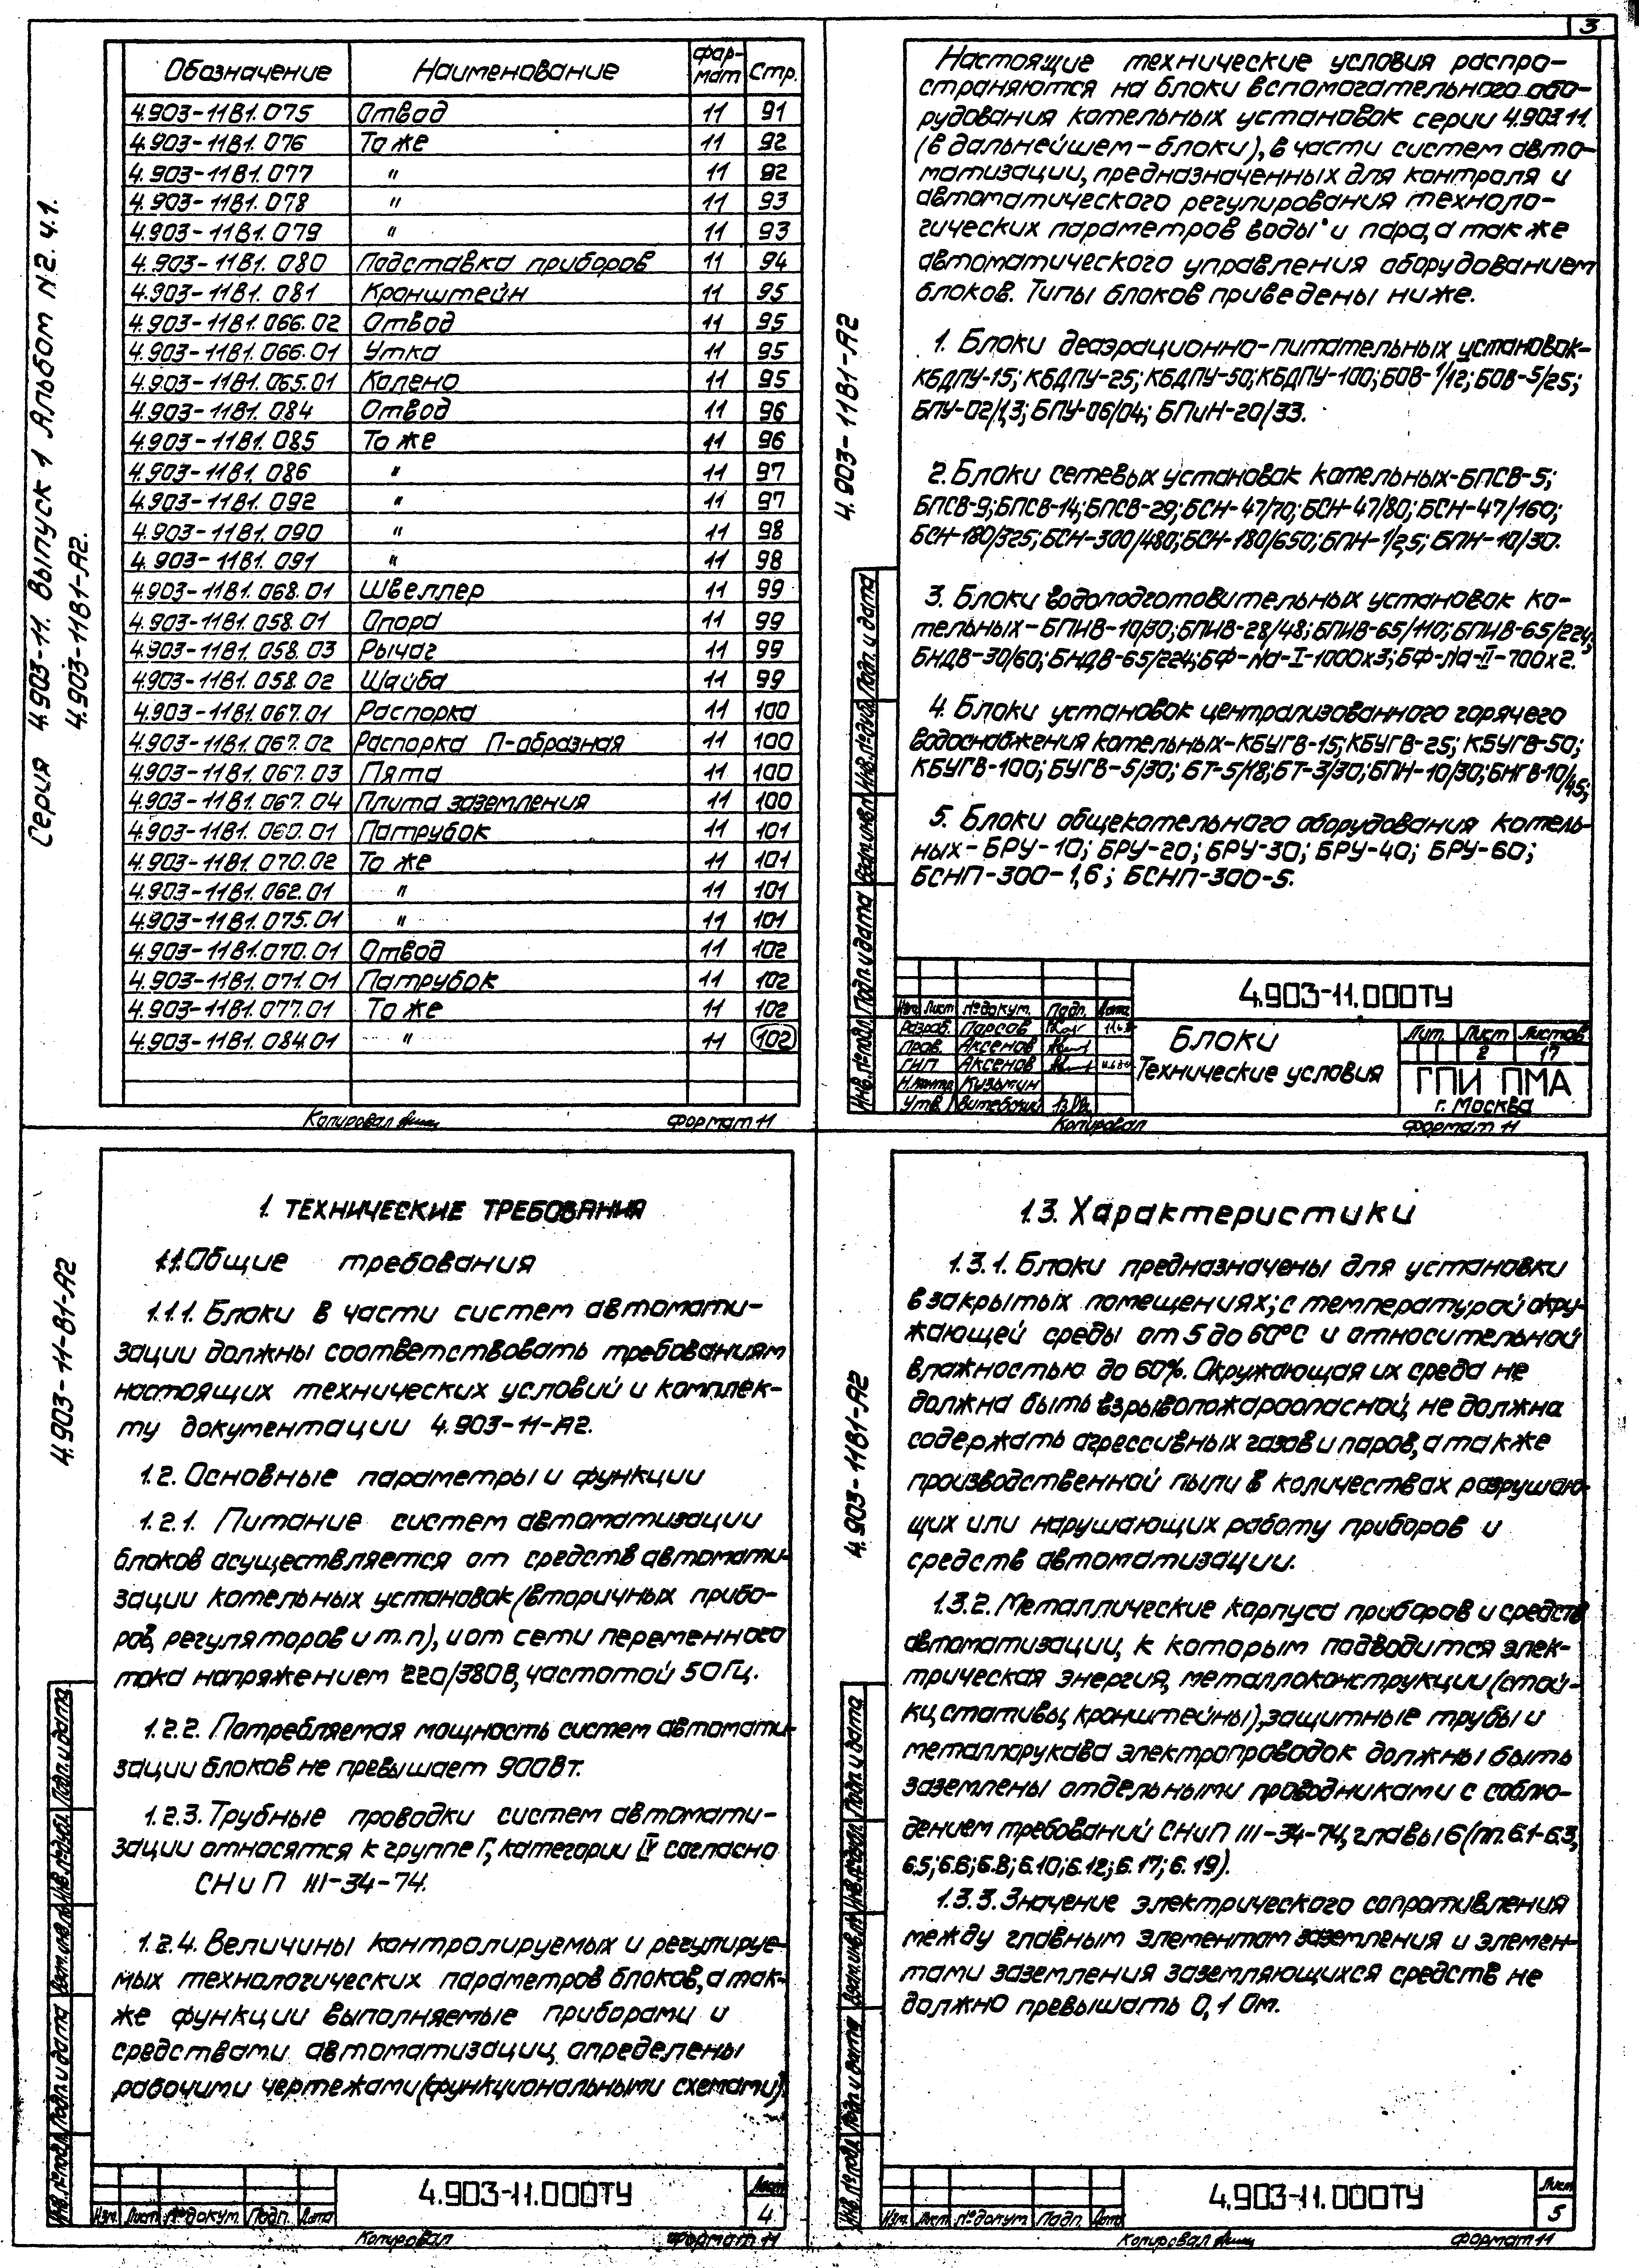 3
Серия 4.903-11. Выпуск 1 Альбом №2. ч.1.
4.903-11В1-А2.
Обозначение Наименование фор-мат Стр.
4.903-11В1.075 Отвод 11 91
4.903-11В1.076 То же 11 92
4.903-11В1.077 " 11 92
4.903-11В1.078 " 11 93
4.903-11В1.079 " 11 93
4.903-11В1.080 Подставка приборов 11 94
4.903-11В1.081 Кронштейн 11 95
4.903-11В1.066.02 Отвод 11 95
4.903-11В1.066.01 Утка 11 95
4.903-11В1.065.01 Колено 11 95
4.903-11В1.084 Отвод 11 96
4.903-11В1.085 То же 11 96
4.903-11В1.086 " 11 97
4.903-11В1.092 " 11 97
4.903-11В1.090 " 11 98
4.903-11В1.091 " 11 98
4.903-11В1.068.01 Швеллер 11 99
4.903-11В1.058.01 Опора 11 99
4.903-11В1.058.03 Рычаг 11 99
4.903-11В1.058.02 Шайба 11 99
4.903-11В1.067.01 Распорка 11 100
4.903-11В1.067.02 Распорка П-образная 11 100
4.903-11В1.067.03 Пята 11 100
4.903-11В1.067.04 Плита заземления 11 100
4.903-11В1.060.01 Патрубок 11 101
4.903-11В1.070.02 То же 11 101
4.903-11В1.062.01 " 11 101
4.903-11В1.075.01 " 11 101
4.903-11В1.070.01 Отвод 11 102
4.903-11В1.071.01 Патрубок 11 102
4.903-11В1.077.01 То же 11 102
4.903-11В1.084.01 " 11 102
Копировал Формат 11
4.903-11В1-А2
Настоящие технические условия распро-
страняются на блоки вспомогательного обо-
рудования котельных установок серии 4.903.11.
(в дальнейшем-блоки), в части систем авто-
матизации, предназначенных для контроля и
автоматического регулирования техноло-
гических параметров воды и пара, а также
автоматического управления оборудованием
блоков. Типы блоков приведены ниже.
1. Блоки деаэрационно-питательных установок-
КБДПУ-15; КБДПУ-25; КБДПУ-50; КБДПУ-100; БОВ-1/12; БОВ-5/25;
БПУ-02/1,3; БПУ-06/04; БПиН-20/33.
2. Блоки сетевых установок котельных-БПСВ-5;
БПСВ-9; БПСВ-14; БПСВ-29; БСН-47/70; БСН-47/80; БСН-47/160;
БСН-180/325; БСН-300/480; БСН-180/650; БПН-1/25; БПН-10/30.
3. Блоки водоподготовительных установок ко-
тельных-БПИВ-10/30; БПИВ-28/48; БПИВ-65/110; БПИВ-65/224;
БНДВ-30/60; БНДВ-65/224; БФ-Na-I-1000х3; БФ-Na-II-700х2.
4. Блоки установок централизованного горячего
водоснабжения котельных-КБУГВ-15; КБУГВ-25; КБУГВ-50;
КБУГВ-100; БУГВ-5/30; БТ-5/18; БТ-3/30; БПН-10/30; БНГВ-10/45;
5. Блоки общекотельного оборудования котель-
ных-БРУ-10; БРУ-20; БРУ-30; БРУ-40; БРУ-60;
БСНП-300-1,6; БСНП-300-5.
Инв.№подл. Подп.и дата Взам.инв.№ Инв.№дубл. Подп. и дата
4.903-11.000ТУ
Изм. Лист №докум. Подп. Дата
Разраб. Парсов
Пров. Аксенов
ГИП Аксенов
Н.контр. Кузьмин
Утв. Витебский
Блоки
Технические условия
Лит. Лист Листов
2 17
ГПИ ПМА
г. Москва
Копировал Формат 11
4.903-11-В1-А2
1. ТЕХНИЧЕСКИЕ ТРЕБОВАНИЯ
1.1. Общие требования
1.1.1. Блоки в части систем автомати-
зации должны соответствовать требованиям
настоящих технических условий и комплек-
ту документации 4.903-11-А2.
1.2. Основные параметры и функции
1.2.1. Питание систем автоматизации
блоков осуществляется от средств автомати-
зации котельных установок (вторичных прибо-
ров, регуляторов и т.п), и от сети переменного
тока напряжением 220/380В, частотой 50Гц.
1.2.2. Потребляемая мощность систем автомати-
зации блоков не превышает 900Вт.
1.2.3. Трубные проводки систем автомати-
зации относятся к группе Г, категории IV согласно
СНиП III-34-74.
1.2.4. Величины контролируемых и регулируе-
мых технологических параметров блоков, а так-
же функции выполняемые приборами и
средствами автоматизации, определены
рабочими чертежами (функциональными схемами).
Инв.№подл. Подп.и дата Взам.инв.№ Инв.№дубл. Подп.и дата
Изм. Лист №докум. Подп. Дата
4.903-11.000ТУ
Лист
4
Копировал Формат 11
4.903-11В1-А2
1.3. Характеристики
1.3.1. Блоки предназначены для установки
в закрытых помещениях; с температурой окру-
жающей среды от 5 до 60°С и относительной
влажностью до 60%. Окружающая их среда не
должна быть взрывопожароопасной, не должна
содержать агрессивных газов и паров, а также
производственной пыли в количествах разрушаю-
щих или нарушающих работу приборов и
средств автоматизации.
1.3.2. Металлические корпуса приборов и средств
автоматизации, к которым подводится элек-
трическая энергия, металлоконструкции (стой-
ки, стативы, кронштейны), защитные трубы и
металлорукава электропроводок должны быть
заземлены отдельными проводниками с соблю-
дением требований СНиП III-34-74, главы 6 (пп. 6.1-6.3,
6.5; 6.6; 6.8; 6.10; 6.12; 6.17; 6.19).
1.3.3. Значение электрического сопротивления
между главным элементом заземления и элемен-
тами заземления заземляющихся средств не
должно превышать 0,1 Ом.
Инв.№подл. Подп.и дата Взам.инв.№ Инв.№дубл. Подп.и дата
Изм. Лист №докум. Подп. Дата
4.903-11.000ТУ
Лист
5
Копировал Формат 11